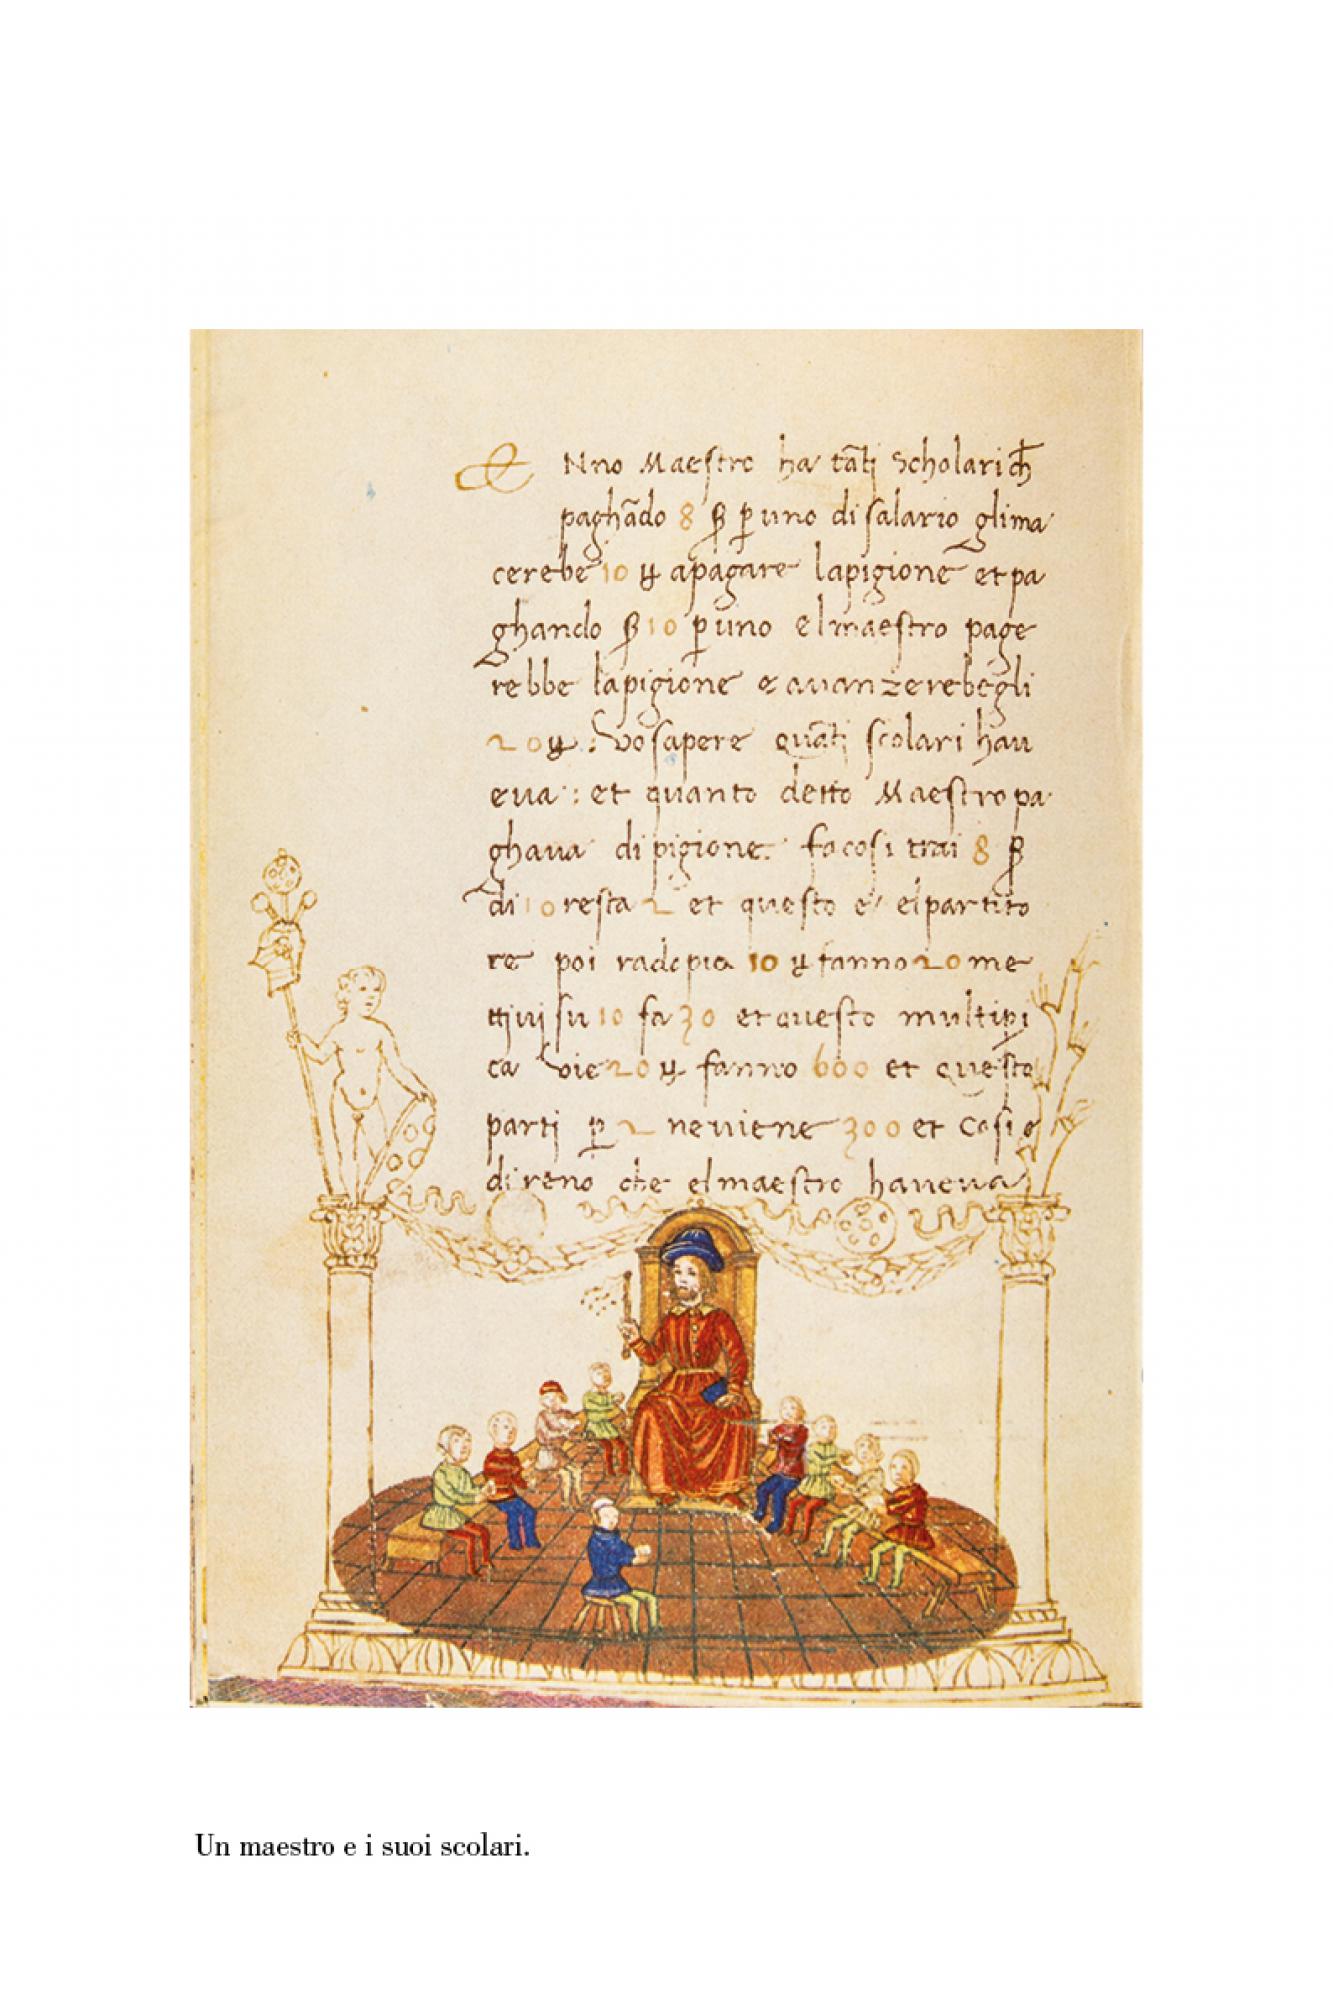 Nno Maestro ha tāti Scholari ch̄
paghādo 8 β ꝑ uno di salario glima
cerebe 10 apagare lapigione et pa
ghando β 10 ꝑ uno elmaestro page
rebbe lapigione e avanzerebegli
20 : vo sapere quāti scolari hav
eva : et quanto detto Maestro pa
ghava di pigione. fa cosi trai 8 β
di 10 resta 2 et questo e/ elpartito
re poi radopia 10 fanno 20 me
ttivi su 10 fa 30 et questo multipi
ca vie 20 fanno 600 et questo
parti ꝑ 2 neviene 300 et cosi e
direno che elmaestro haveva
Un maestro e i suoi scolari.